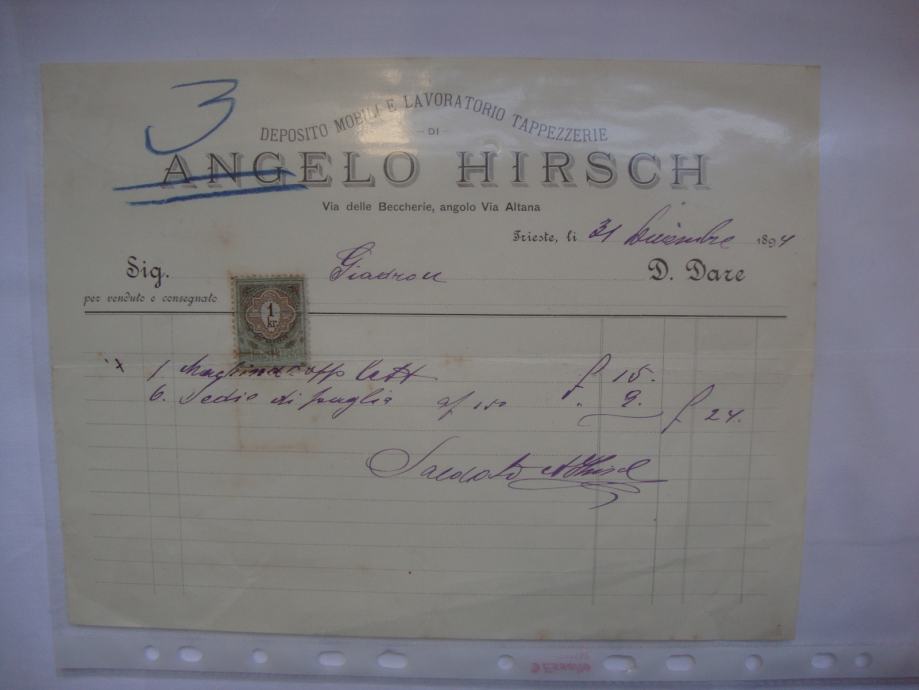 3
DEPOSITO MOBILI E LAVORATORIO TAPPEZZERIE
DI
ANGELO HIRSCH
Via delle Beccherie, angolo Via Altana
Trieste, li 31 Dicembre 1894
Sig. D. Dare
per venduto e consegnato
1 kr.
1 f 15.
6. Sedie di paglia af 1.50 " 9. f 24.
Saldato AHirsch